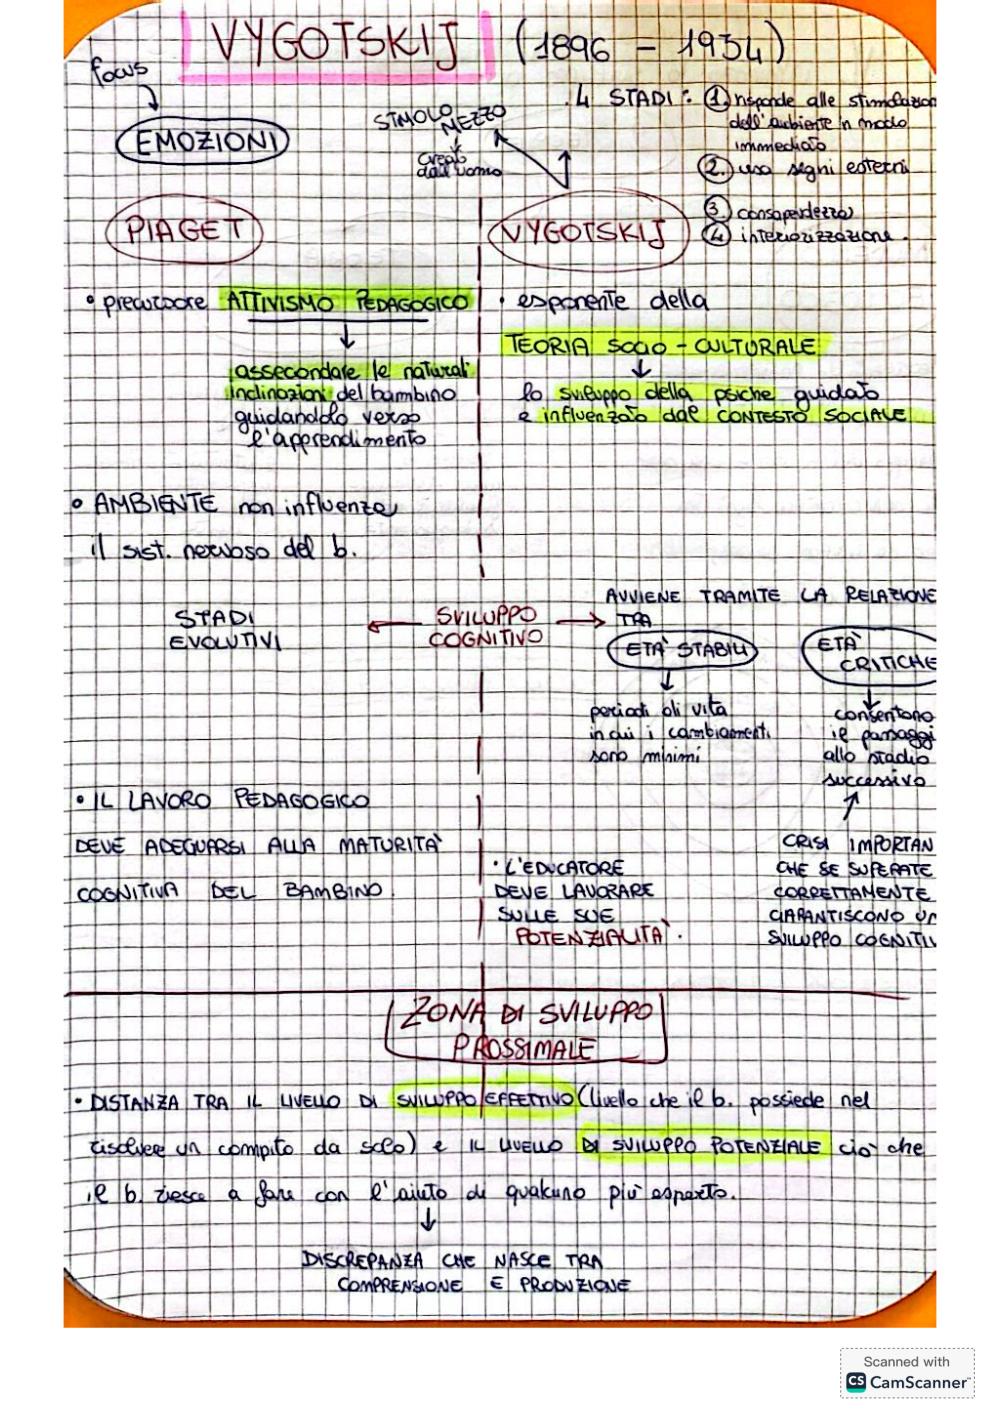 VYGOTSKIJ (1896 - 1934)
focus
EMOZIONI
STIMOLO MEZZO
creato
dall'uomo
4 STADI: 1. risponde alle stimolazion
dell'ambiente in modo
immediato
2. usa segni esterni
3. consapevolezza
4. interiorizzazione.
PIAGET
VYGOTSKIJ
• precursore ATTIVISMO PEDAGOGICO
assecondare le naturali
inclinazioni del bambino
guidandolo verso
l'apprendimento
• esponente della
TEORIA SOCIO - CULTURALE
lo sviluppo della psiche guidato
e influenzato dal CONTESTO SOCIALE
• AMBIENTE non influenza
il sist. nervoso del b.
STADI
EVOLUTIVI
SVILUPPO
COGNITIVO
AVVIENE TRAMITE LA RELAZIONE
TRA
ETA' STABILI
ETA'
CRITICHE
periodi di vita
in cui i cambiamenti
sono minimi
consentono
il passaggi
allo stadio
successivo
CRISI IMPORTAN
CHE SE SUPERATE
CORRETTAMENTE
GARANTISCONO UN
SVILUPPO COGNITIV
• IL LAVORO PEDAGOGICO
DEVE ADEGUARSI ALLA MATURITA'
COGNITIVA DEL BAMBINO.
• L'EDUCATORE
DEVE LAVORARE
SULLE SUE
POTENZIALITA'.
ZONA DI SVILUPPO
PROSSIMALE
• DISTANZA TRA IL LIVELLO DI SVILUPPO EFFETTIVO (livello che il b. possiede nel
risolvere un compito da solo) e IL LIVELLO DI SVILUPPO POTENZIALE ciò che
il b. riesce a fare con l'aiuto di qualcuno più esperto.
DISCREPANZA CHE NASCE TRA
COMPRENSIONE E PRODUZIONE
Scanned with
CS CamScanner